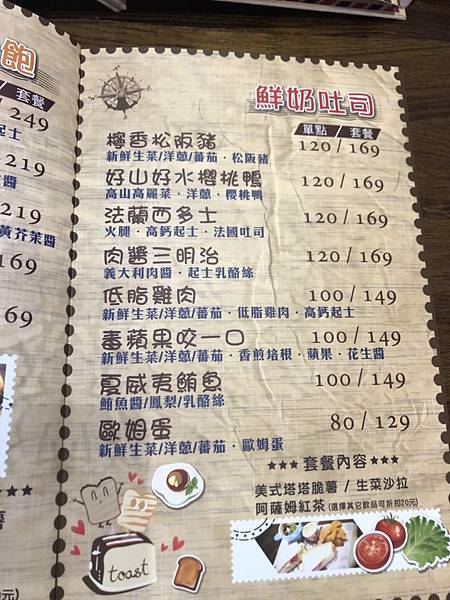 飽
套餐
249
起士
219
醬
219
黃芥茉醬
169
69
鮮奶吐司
單點 / 套餐
檸香松阪豬 120 / 169
新鮮生菜/洋蔥/蕃茄‧松阪豬
好山好水櫻桃鴨 120 / 169
高山高麗菜‧洋蔥‧櫻桃鴨
法蘭西多士 120 / 169
火腿‧高鈣起士‧法國吐司
肉醬三明治 120 / 169
義大利肉醬‧起士乳酪絲
低脂雞肉 100 / 149
新鮮生菜/洋蔥/蕃茄‧低脂雞肉‧高鈣起士
毒蘋果咬一口 100 / 149
新鮮生菜/洋蔥/蕃茄‧香煎培根‧蘋果‧花生醬
夏威夷鮪魚 100 / 149
鮪魚醬/鳳梨/乳酪絲
歐姆蛋 80 / 129
新鮮生菜/洋蔥/蕃茄‧歐姆蛋
★★★ 套餐內容 ★★★
美式塔塔脆薯 / 生菜沙拉
阿薩姆紅茶 (選擇其它飲品可折扣20元)
toast